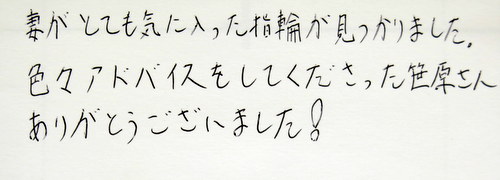 妻がとても気に入った指輪が見つかりました。
色々アドバイスをしてくださった笹原さん
ありがとうございました！